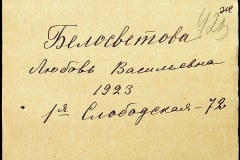 Белосветова
Любовь Васильевна
1923
1я Слободская - 72